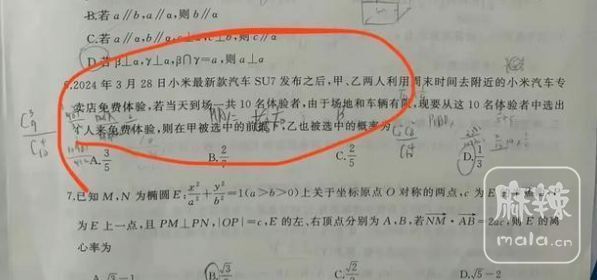 B.若 a∥b,a∥α,则 b∥α
C.若 a∥α,b∥β,c⊥a,c⊥b,则 c∥α
D.若 β⊥α,γ⊥α,β∩γ=a,则 a⊥α
6.2024 年 3 月 28 日小米最新款汽车 SU7 发布之后,甲、乙两人利用周末时间去附近的小米汽车专
卖店免费体验,若当天到场一共 10 名体验者,由于场地和车辆有限,现要从这 10 名体验者中选出
4 人来免费体验,则在甲被选中的前提下,乙也被选中的概率为
A.3/5 B.2/ C.2/5 D.1/3
7.已知 M,N 为椭圆 E:x²/a²+y²/b²=1(a>b>0)上关于坐标原点 O 对称的两点,c 为 E
为 E 上一点,且 PM⊥PN,|OP|=c,E 的左、右顶点分别为 A,B,若NM·AB=2ac,则 E 的离
心率为
A.√3-1 B.√3 C.√2 D.√5-1
麻辣
mala.cn